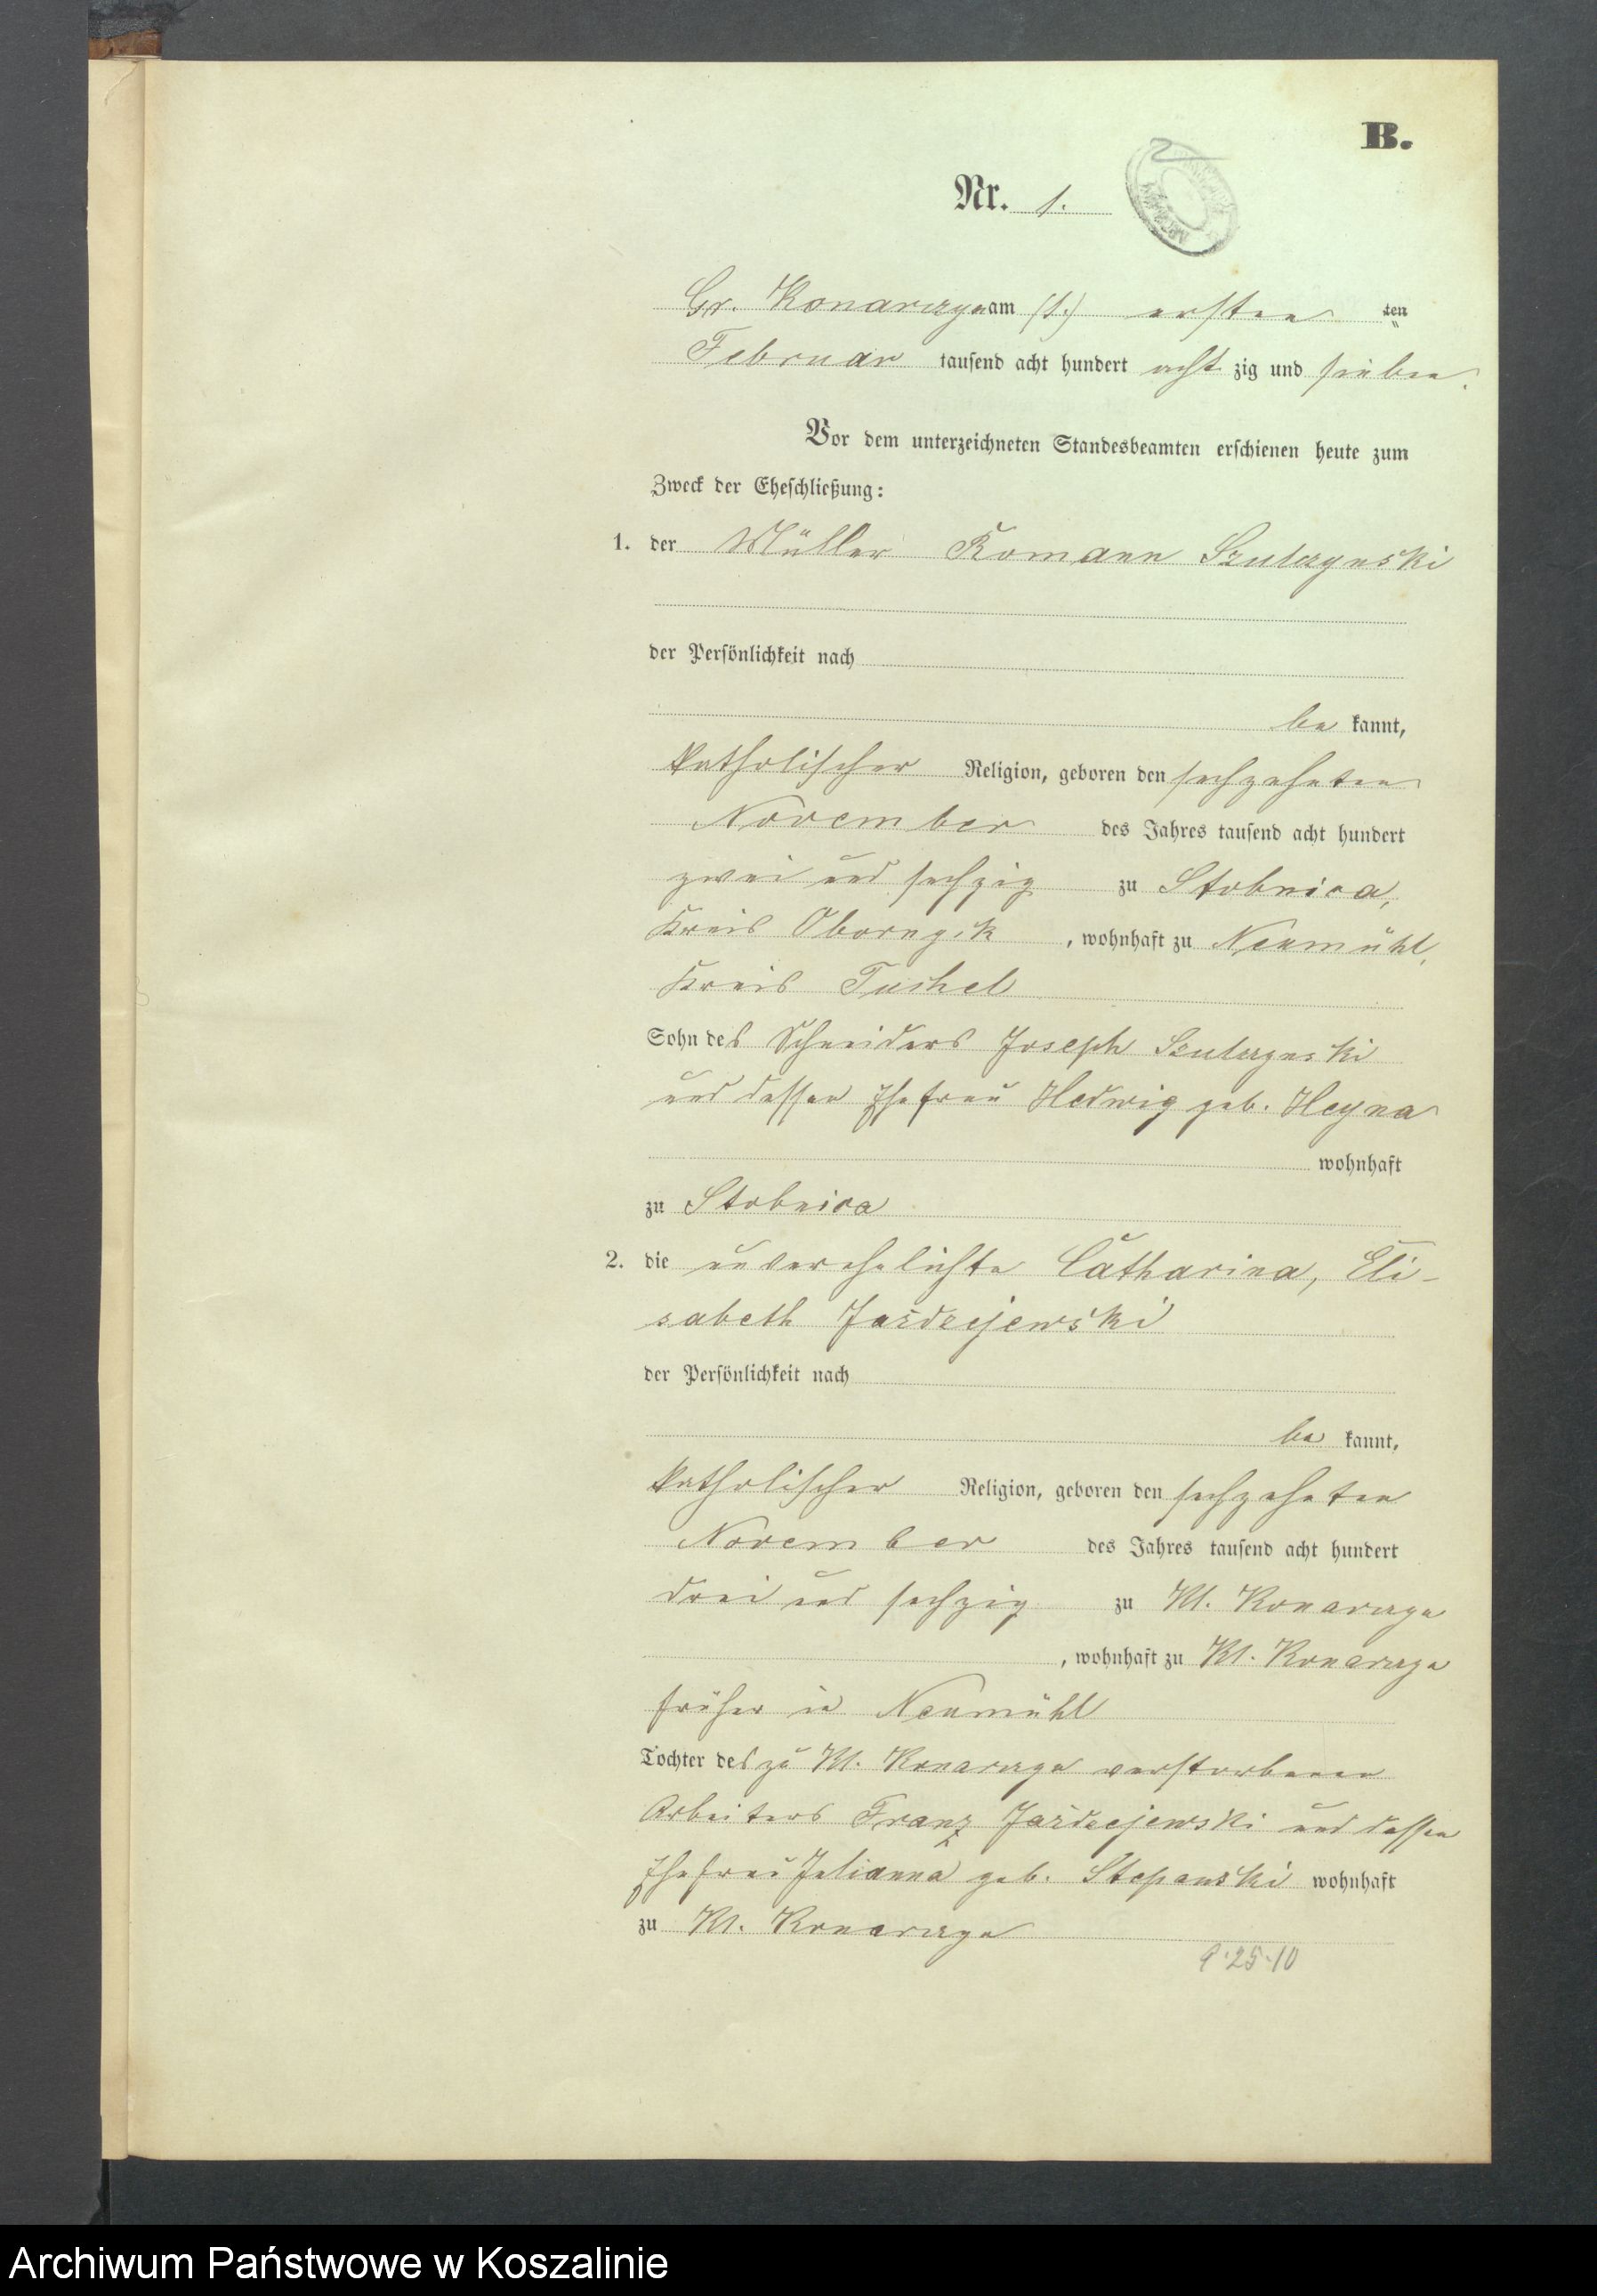 B.
Nr. 1.
Gr. Konarczyn am (1.) ersten ten
Februar tausend acht hundert acht zig und sieben.
Vor dem unterzeichneten Standesbeamten erschienen heute zum
Zweck der Eheschließung:
1. der Müller Romann Szulczynski
der Persönlichkeit nach
be kannt,
katholischer Religion, geboren den sechzehnten
November des Jahres tausend acht hundert
zwei und sechzig zu Stobnica,
Kreis Obornyik, wohnhaft zu Neumühl,
Kreis Tuchel
Sohn des Schneiders Joseph Szulczynski
und dessen Ehefrau Hedwig geb. Heyna
wohnhaft
zu Stobnica
2. die unverehelichte Catharina, Eli-
sabeth Jażdzejewski
der Persönlichkeit nach
be kannt,
katholischer Religion, geboren den sechzehnten
November des Jahres tausend acht hundert
drei und sechzig zu Kl. Konarczyn
, wohnhaft zu Kl. Konarczyn
früher in Neumühl
Tochter des zu Kl. Konarczyn verstorbenen
Arbeiters Franz Jażdzejewski und dessen
Ehefrau Julianna geb. Stepanski wohnhaft
zu Kl. Konarczyn
9.25.10
Archiwum Państwowe w Koszalinie